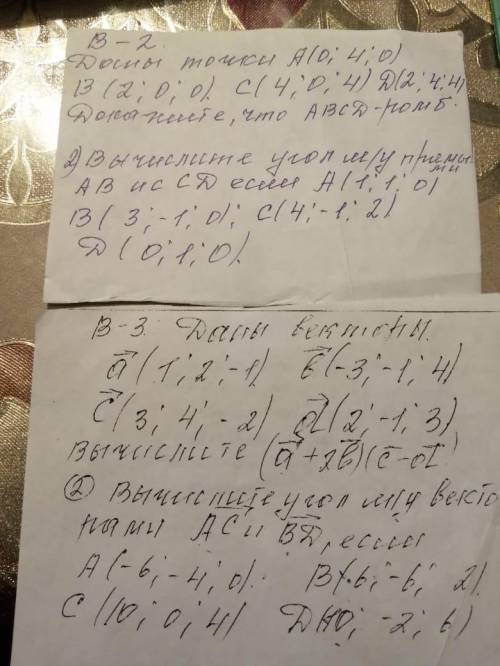 В-2.
Даны точки A(0; 4; 0)
B(2; 0; 0). C(4; 0; 4) D(2; 4; 4)
Докажите, что ABCD-ромб.
2) Вычислите угол м/у прямы
ми
AB и CD если A(1; 1; 0)
B(3; -1; 0); C(4; -1; 2).
D(0; 1; 0).
В-3. Даны векторы.
a(1; 2; -1) в(-3; -1; 4)
c(3; 4; -2) d(2; -1; 3)
Вычислите (a + 2b)(c - d)
② Вычислите угол м/у векто
рами AC и BD, если
A(-6; -4; 0). B(6; -6; 2).
C(10; 0; 4) D(10; -2; 6)